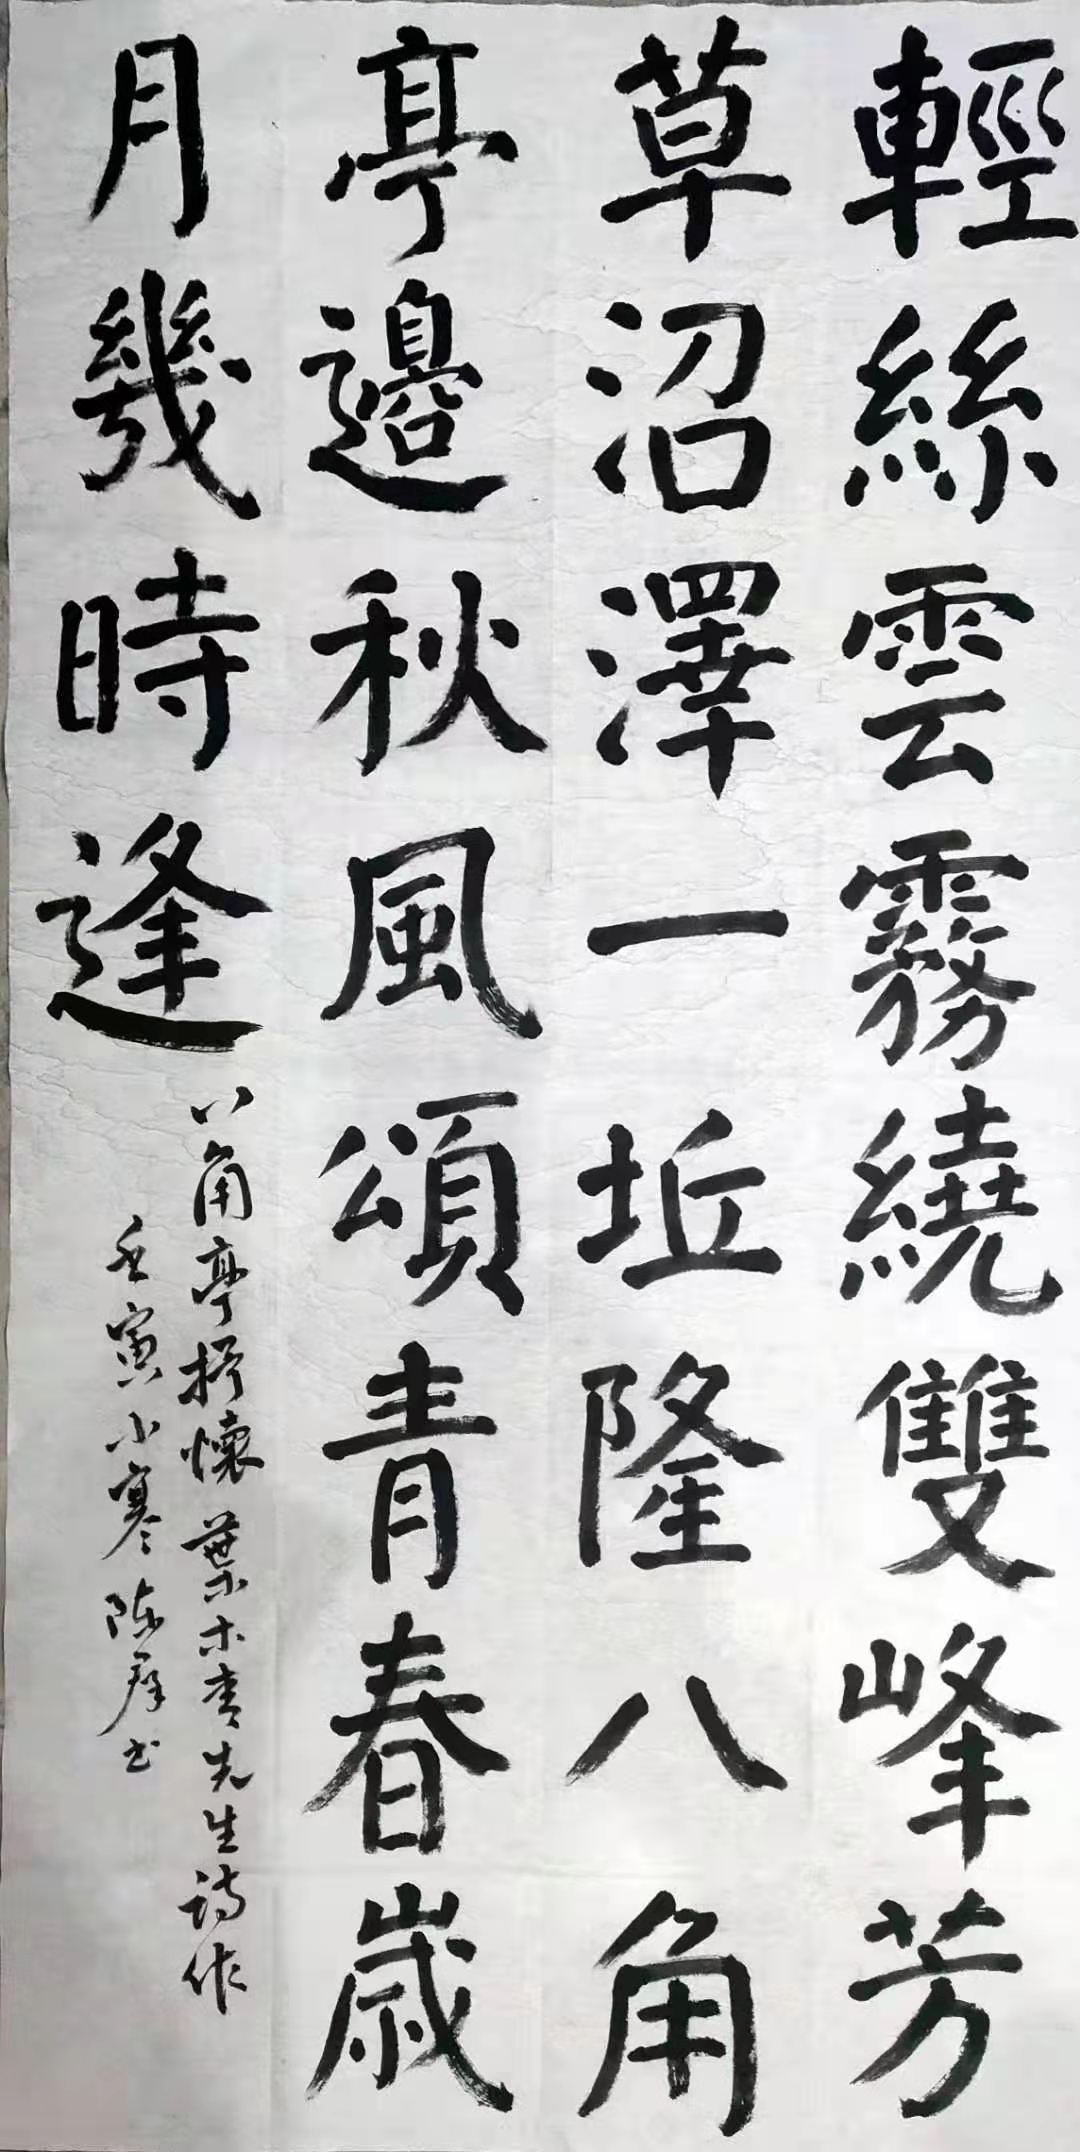 輕絲雲霧繞雙峰芳
草沼澤一坵隆八角
亭邊秋風頌青春歲
月幾時逢
八角亭抒懷葉木青先生詩作
壬寅小寒陈群书